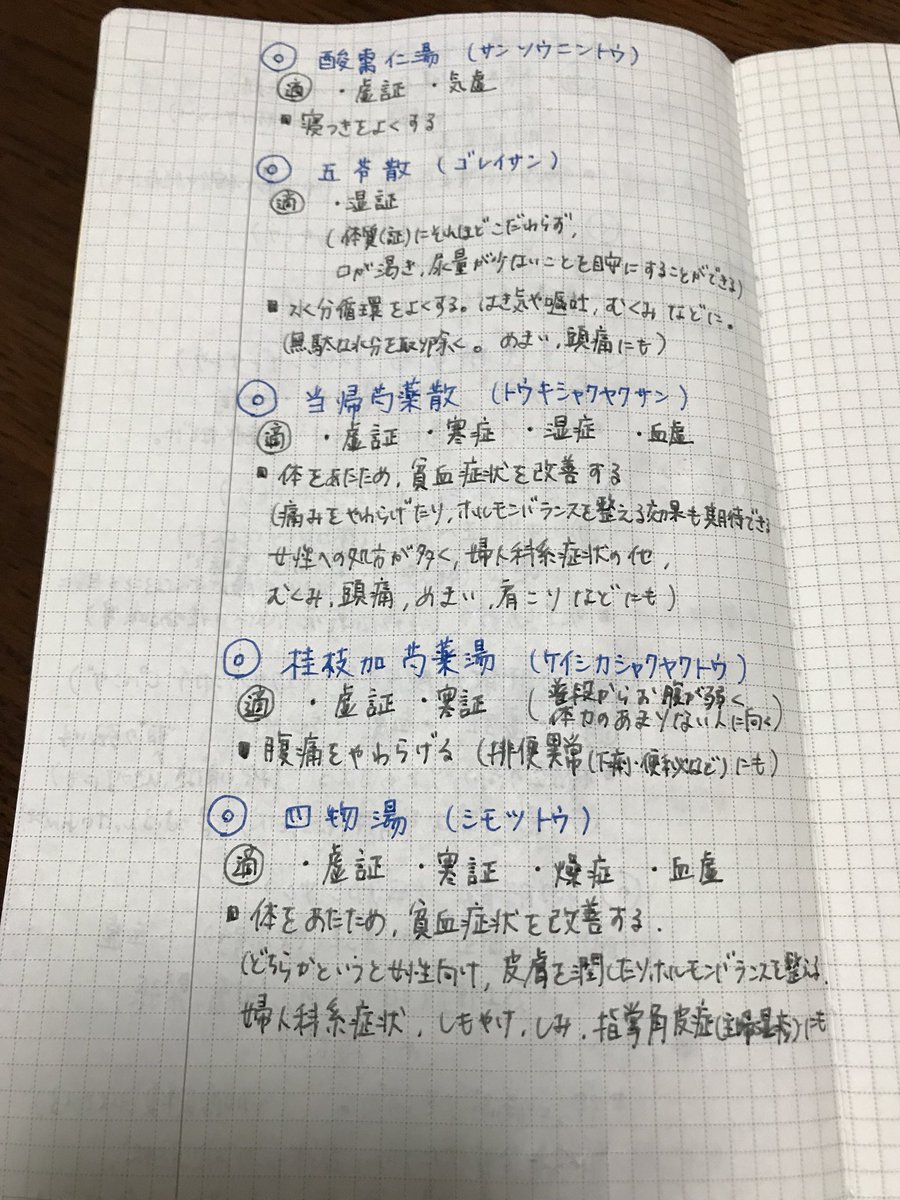 ◎ 酸棗仁湯 (サンソウニントウ)
適 ・虚証 ・気虚
▪ 寝つきをよくする
◎ 五苓散 (ゴレイサン)
適 ・湿証
(体質(証)にそれほどこだわらず,
口が渇き,尿量が少ないことを目安にすることができる)
▪ 水分循環をよくする。はき気や嘔吐,むくみなどに。
(無駄な水分を取り除く。めまい,頭痛にも)
◎ 当帰芍薬散 (トウキシャクヤクサン)
適 ・虚証 ・寒症 ・湿症 ・血虚
▪ 体をあたため,貧血症状を改善する
(痛みをやわらげたり,ホルモンバランスを整える効果も期待でき
女性への処方が多く,婦人科系症状の他,
むくみ,頭痛,めまい,肩こりなどにも)
◎ 桂枝加芍薬湯 (ケイシカシャクヤクトウ)
適 ・虚証 ・寒証 (普段からお腹が弱く
体力のあまりない人に向く)
▪ 腹痛をやわらげる (排便異常(下痢・便秘など)にも)
◎ 四物湯 (シモツトウ)
適 ・虚証 ・寒証 ・燥症 ・血虚
▪ 体をあたため,貧血症状を改善する.
(どちらかというと女性向け,皮膚を潤したりホルモンバランスを整える.
婦人科系症状,しもやけ,しみ,指掌角皮症(主婦湿疹)にも